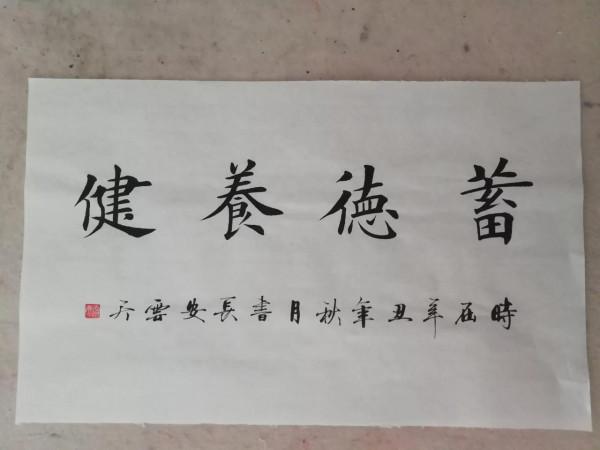 蓄徳養健
時屆辛丑年秋月書長安雲